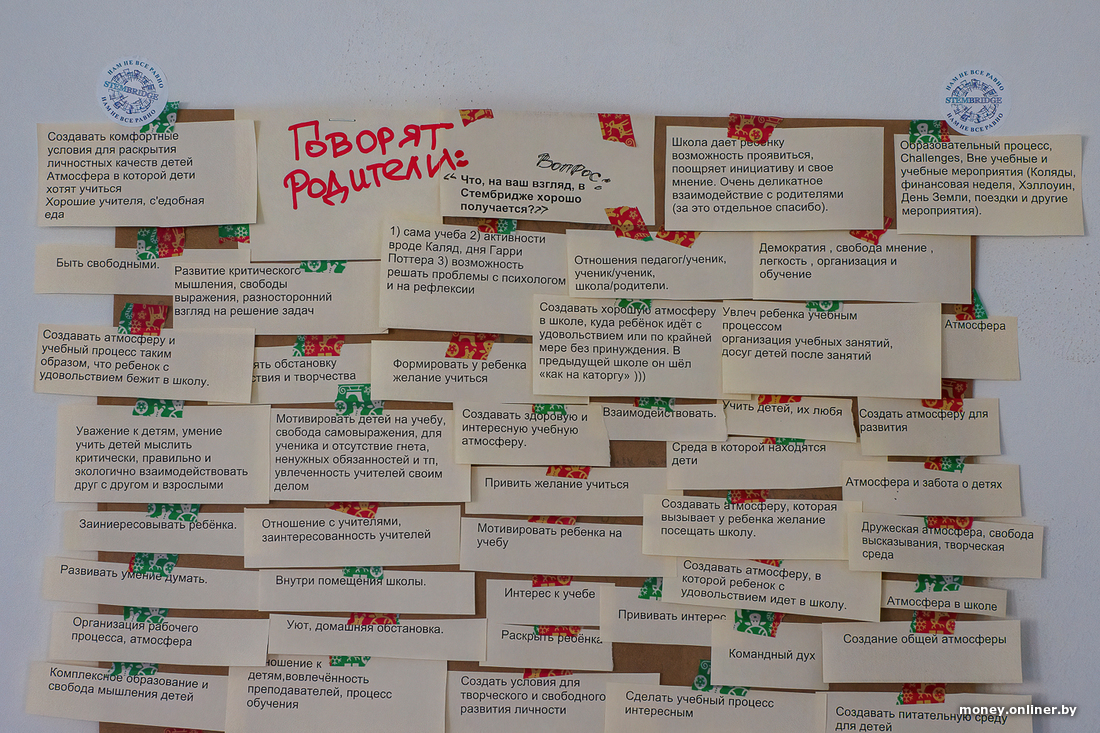 НАМ НЕ ВСЕ РАВНО
STEMBRIDGE
НАМ НЕ ВСЕ РАВНО
НАМ НЕ ВСЕ РАВНО
STEMBRIDGE
НАМ НЕ ВСЕ РАВНО
Говорят
Родители:
Вопрос:
“ Что, на ваш взгляд, в
Стембридже хорошо
получается???
Создавать комфортные
условия для раскрытия
личностных качеств детей
Атмосфера в которой дети
хотят учиться
Хорошие учителя, с'едобная
еда
Школа дает ребенку
возможность проявиться,
поощряет инициативу и свое
мнение. Очень деликатное
взаимодействие с родителями
(за это отдельное спасибо).
Образовательный процесс,
Challenges, Вне учебные и
учебные мероприятия (Коляды,
финансовая неделя, Хэллоуин,
День Земли, поездки и другие
мероприятия).
Быть свободными.
Развитие критического
мышления, свободы
выражения, разносторонний
взгляд на решение задач
1) сама учеба 2) активности
вроде Каляд, дня Гарри
Поттера 3) возможность
решать проблемы с психологом
и на рефлексии
Отношения педагог/ученик,
ученик/ученик,
школа/родители.
Демократия , свобода мнение ,
легкость , организация и
обучение
Создавать атмосферу и
учебный процесс таким
образом, что ребенок с
удовольствием бежит в школу.
ять обстановку
ствия и творчества
Формировать у ребенка
желание учиться
Создавать хорошую атмосферу
в школе, куда ребёнок идёт с
удовольствием или по крайней
мере без принуждения. В
предыдущей школе он шёл
«как на каторгу» )))
Увлеч ребенка учебным
процессом
организация учебных занятий,
досуг детей после занятий
Атмосфера
Уважение к детям, умение
учить детей мыслить
критически, правильно и
экологично взаимодействовать
друг с другом и взрослыми
Мотивировать детей на учебу,
свобода самовыражения, для
ученика и отсутствие гнета,
ненужных обязанностей и тп,
увлеченность учителей своим
делом
Создавать здоровую и
интересную учебную
атмосферу.
Взаимодействовать.
Учить детей, их любя
Создать атмосферу для
развития
Среда в которой находятся
дети
Привить желание учиться
Атмосфера и забота о детях
Заиниересовывать ребёнка.
Отношение с учителями,
заинтересованность учителей
Мотивировать ребенка на
учебу
Создавать атмосферу, которая
вызывает у ребенка желание
посещать школу.
Дружеская атмосфера, свобода
высказывания, творческая
среда
Развивать умение думать.
Внутри помещения школы.
Интерес к учебе
Создавать атмосферу, в
которой ребенок с
удовольствием идет в школу.
Атмосфера в школе
Организация рабочего
процесса, атмосфера
Уют, домашняя обстановка.
Раскрыть ребёнка
Прививать интерес
Командный дух
Создание общей атмосферы
Комплексное образование и
свобода мышления детей
ношение к
детям,вовлечённость
преподавателей, процесс
обучения
Создать условия для
творческого и свободного
развития личности
Сделать учебный процесс
интересным
Создавать питательную среду
для детей
money.onliner.by